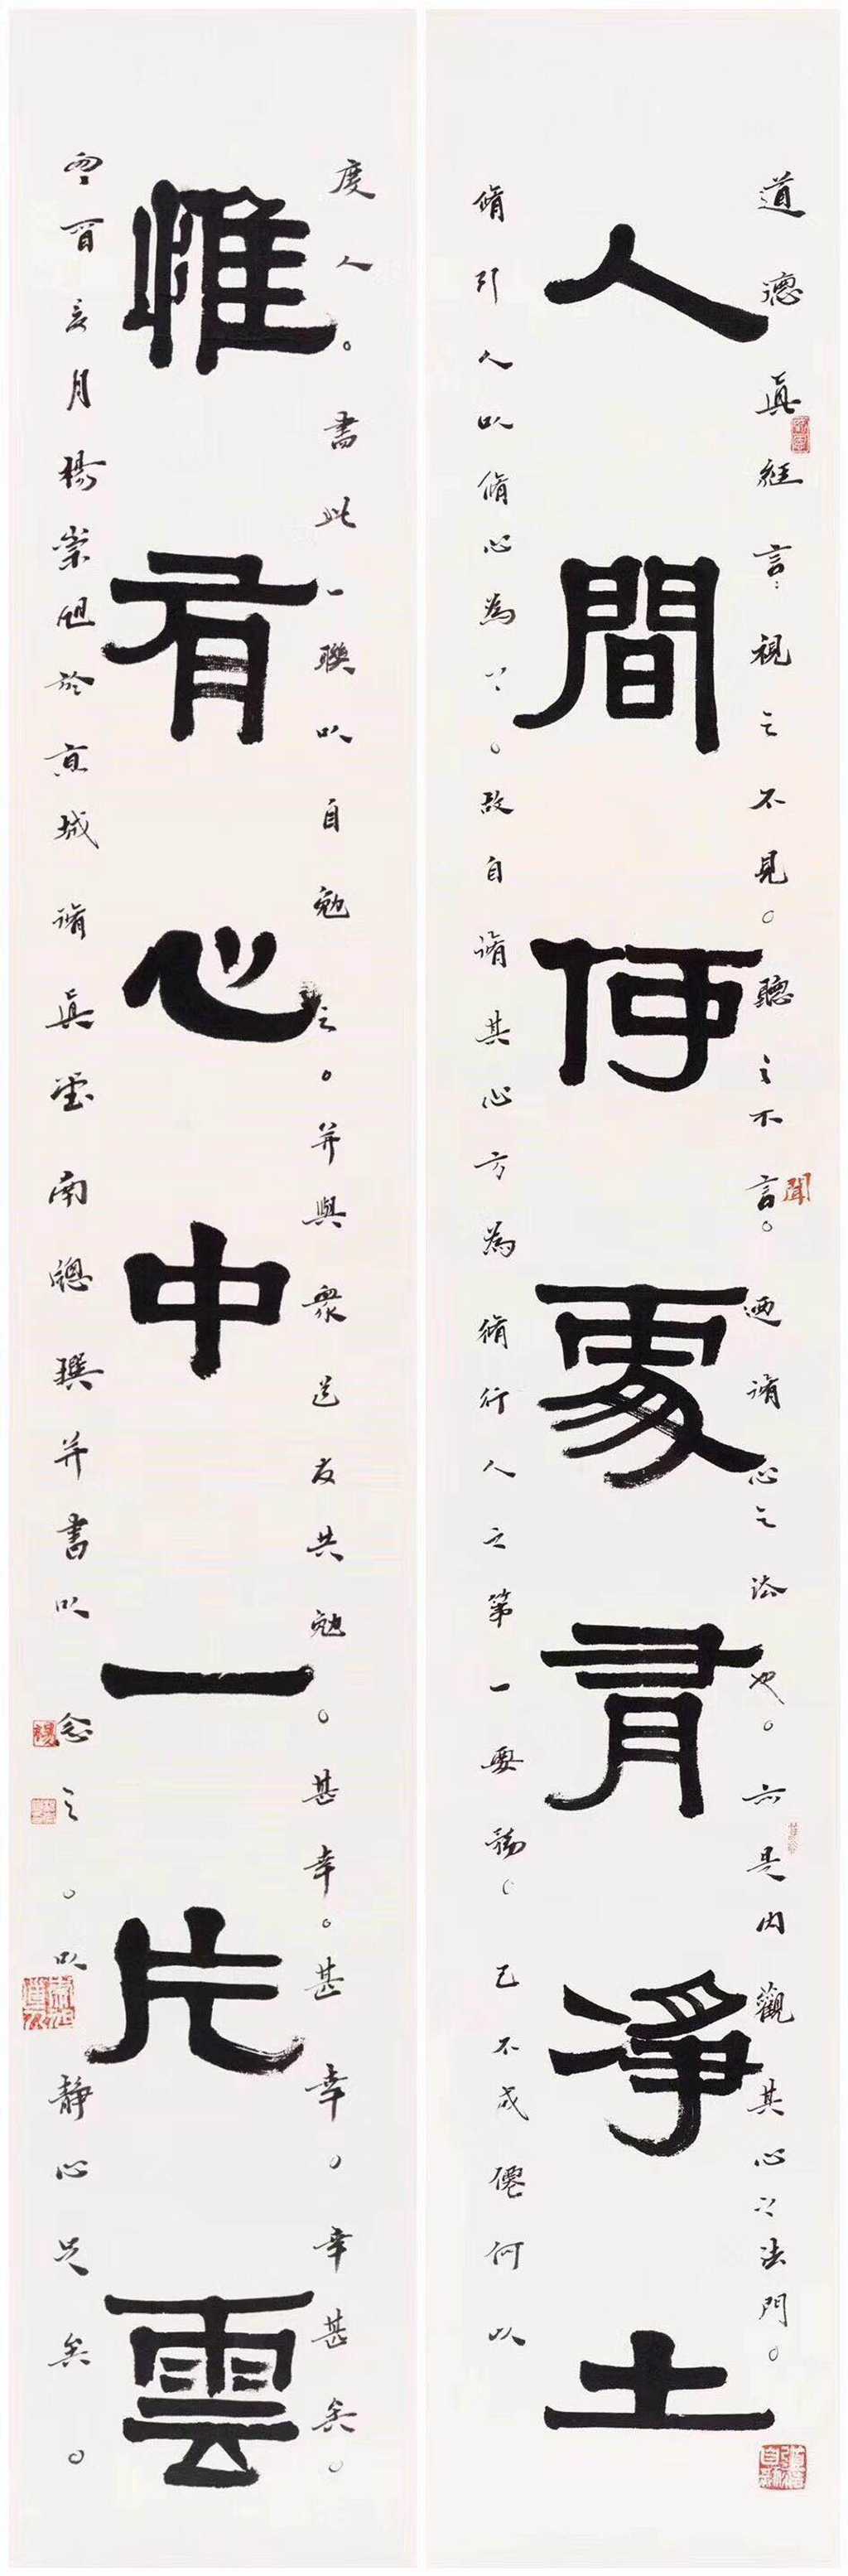 道德真經言：視之不見。聽之不言。迺脩心之法也。亦是內觀其心之法門。
人間何處有淨土
脩引人以脩心為上。故自脩其心方為脩行人之第一要務。己不成僊何以
度人。書此一聯以自勉之。并與衆道友共勉。甚幸。甚幸。幸甚矣。
惟有心中一片雲
亥月楊崇旭於京城脩真堂南牕撰并書以念之。以靜心足矣。
聞